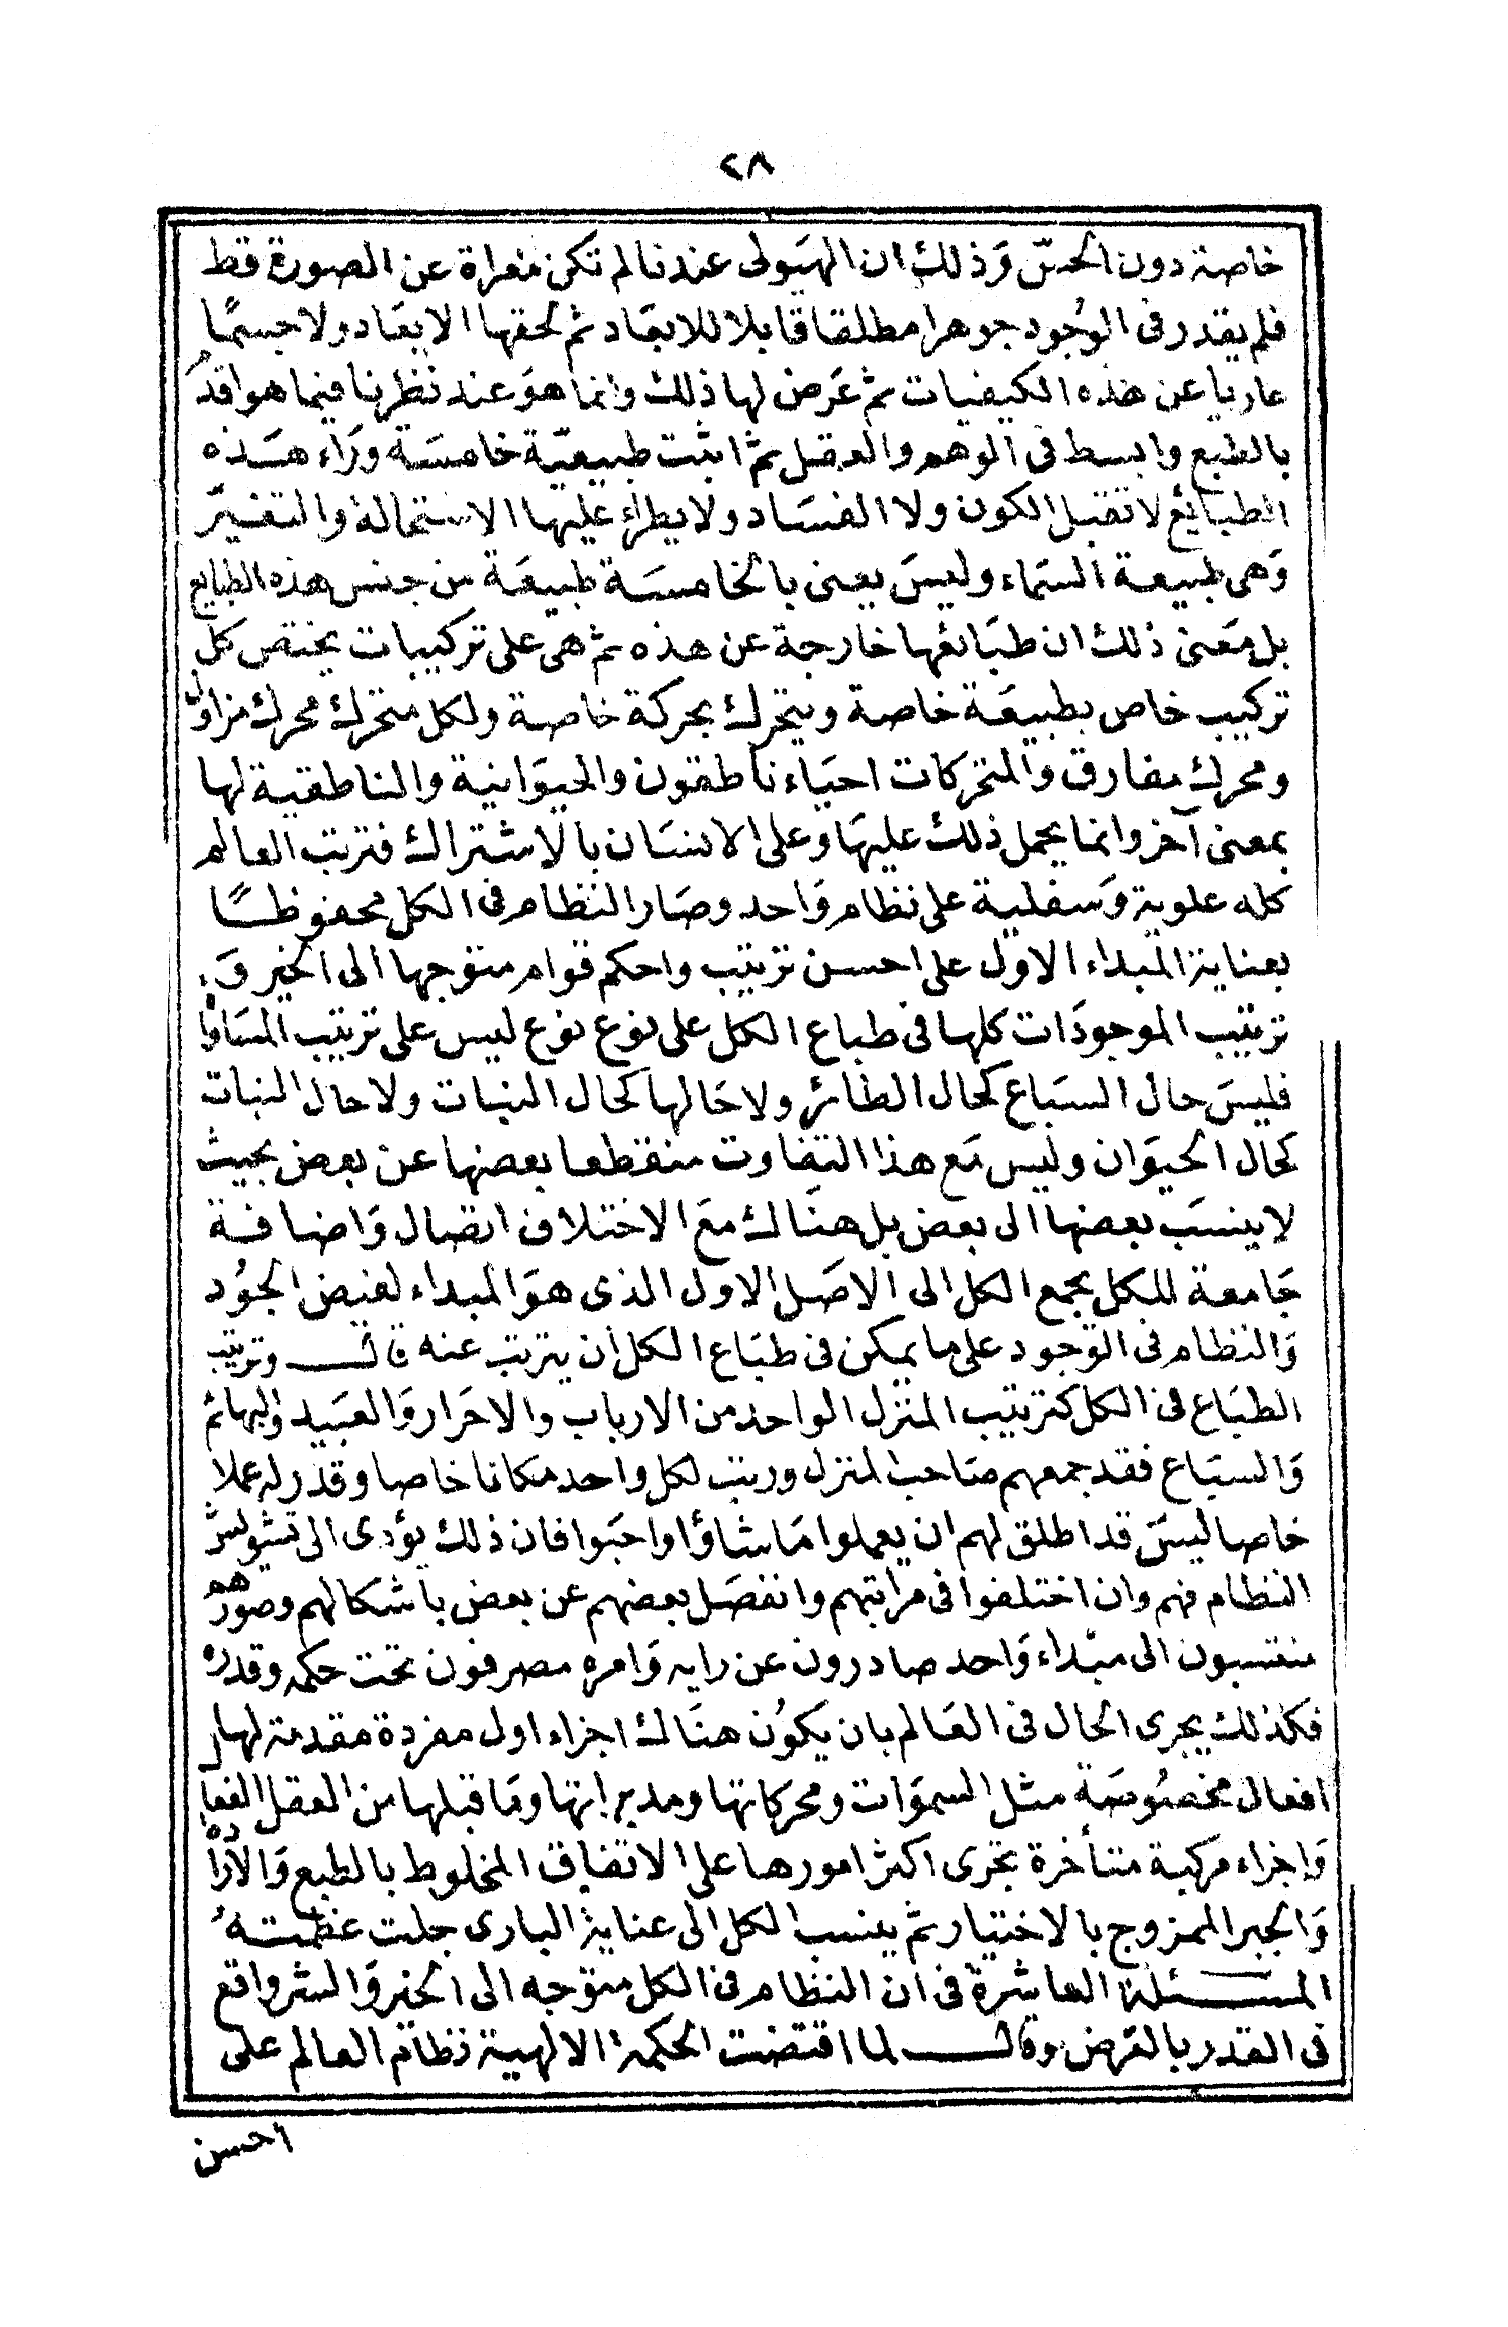 ٢٨
خاصة دون الحسّ وَذلك ان الهيولى عندنا لم تكن معراة عن الصورة قط
فلم يقدر فى الوجُود جوهرا مطلقا قابلا للابعَاد ثم لحقها الابعَاد ولا جسمًا
عاريا عن هذه الكيفيات ثم عَرض لها ذلك وانما هوَ عند نظرنا فيما هو اقدم
بالطبع وابسط فى الوهم والعقل ثم اثبت طبيعيّة خامسَة ورَاء هَذه
الطبايع لا تقبل الكون ولا الفسَاد ولا يطراء عليها الاستحالة والتغيّر
وَهى طبيعة السَماء وليسَ يعنى بالخامسَة طبيعَة من جنس هذه الطبايع
بل معَنى ذلك ان طبَائعها خارجة عن هذه ثم هى على تركيبات يختص كل
تركيب خاص بطبيعَة خاصة ويتحرك بحركة خاصة ولكل متحرك محرك مزاول
ومحرك مفارق والمتحركات احيَاء ناطقون والحيوَانية والناطقية لها
بمعنى آخر وانما يحمل ذلك عليهَا وعلى الانسَان بالاشتراك فترتب العالم
كله علوية وَسفلية على نظام وَاحد وصَار النظام فى الكل محفوظًا
بعناية المبداء الاول على احسن ترتيب واحكم قوام متوجها الى الخير وَ
ترتيب الموجودَات كلها فى طباع الكل على نوع نوع ليس على ترتيب المسَاواة
فليسَ حال السبَاع كحال الطائر ولا حَالها كحال النبات ولا حال النبات
كحال الحيوَان وليس مَع هذا التفاوت منقطعا بعضها عن بعض بحيث
لا ينسَب بعضها الى بعض بل هنَاك معَ الاختلاف اتصال وَاضافة
جَامعة للكل يجمع الكل الى الاصَل الاول الذى هوَ المبداء لفيض الجُود
وَالنظام فى الوَجود على ما يمكن فى طبَاع الكل ان يترتب عنه قال وترتيب
الطبَاع فى الكل كترتيب المنزل الواحد من الارباب والاحرَار وَالعبَيد والبهائم
وَالسبَاع فقد جمعهم صَاحب المنزل ورتب لكل واحد مكانا خاصا وقدر له عملا
خاصا ليسَ قد اطلق لهم ان يعملوا مَا شاؤا واحبَوا فان ذلك يؤدى الى تشويش
النظام فهم وان اختلفوا فى مراتبهم وانفصَل بعضهم عن بعض باشكالهم وصورهم
منتسبون الى مبداء وَاحد صادرون عن رايه وَامره مصرفون تحت حكمه وقدره
فكذلك يجرى الحال فى العَالم بان يكوُن هنَاك اجزاء اول مفردة مقدمة لها
افعال مخصُوصَة مثل السموَات ومحركاتها ومدبراتها ومَا قبلها من العقل الفعال
وَاجزاء مركبة متأخرة تجرى اكثر امورها على الاتفاق المخلوط بالطبع وَالارادة
وَالجبر الممزوج بالاختيار ثم ينسب الكل الى عناية البارى جلت عظمتهُ
المسئلة العاشرة فى ان النظام فى الكل متوجه الى الخير وَالشر واقع
فى القدر بالعَرض وقال لما اقتضت الحكمة الالهية نظام العالم على
احسن